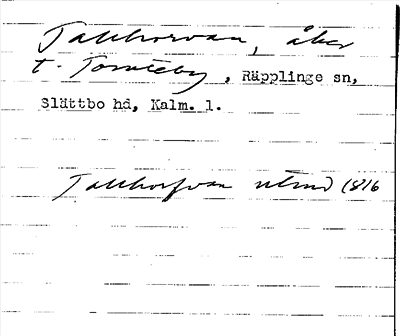 Tallhorvan, åker
t. Tomteby, Räpplinge sn,
Slättbo hd, Kalm. l.
Tallhorfvan utmd 1816